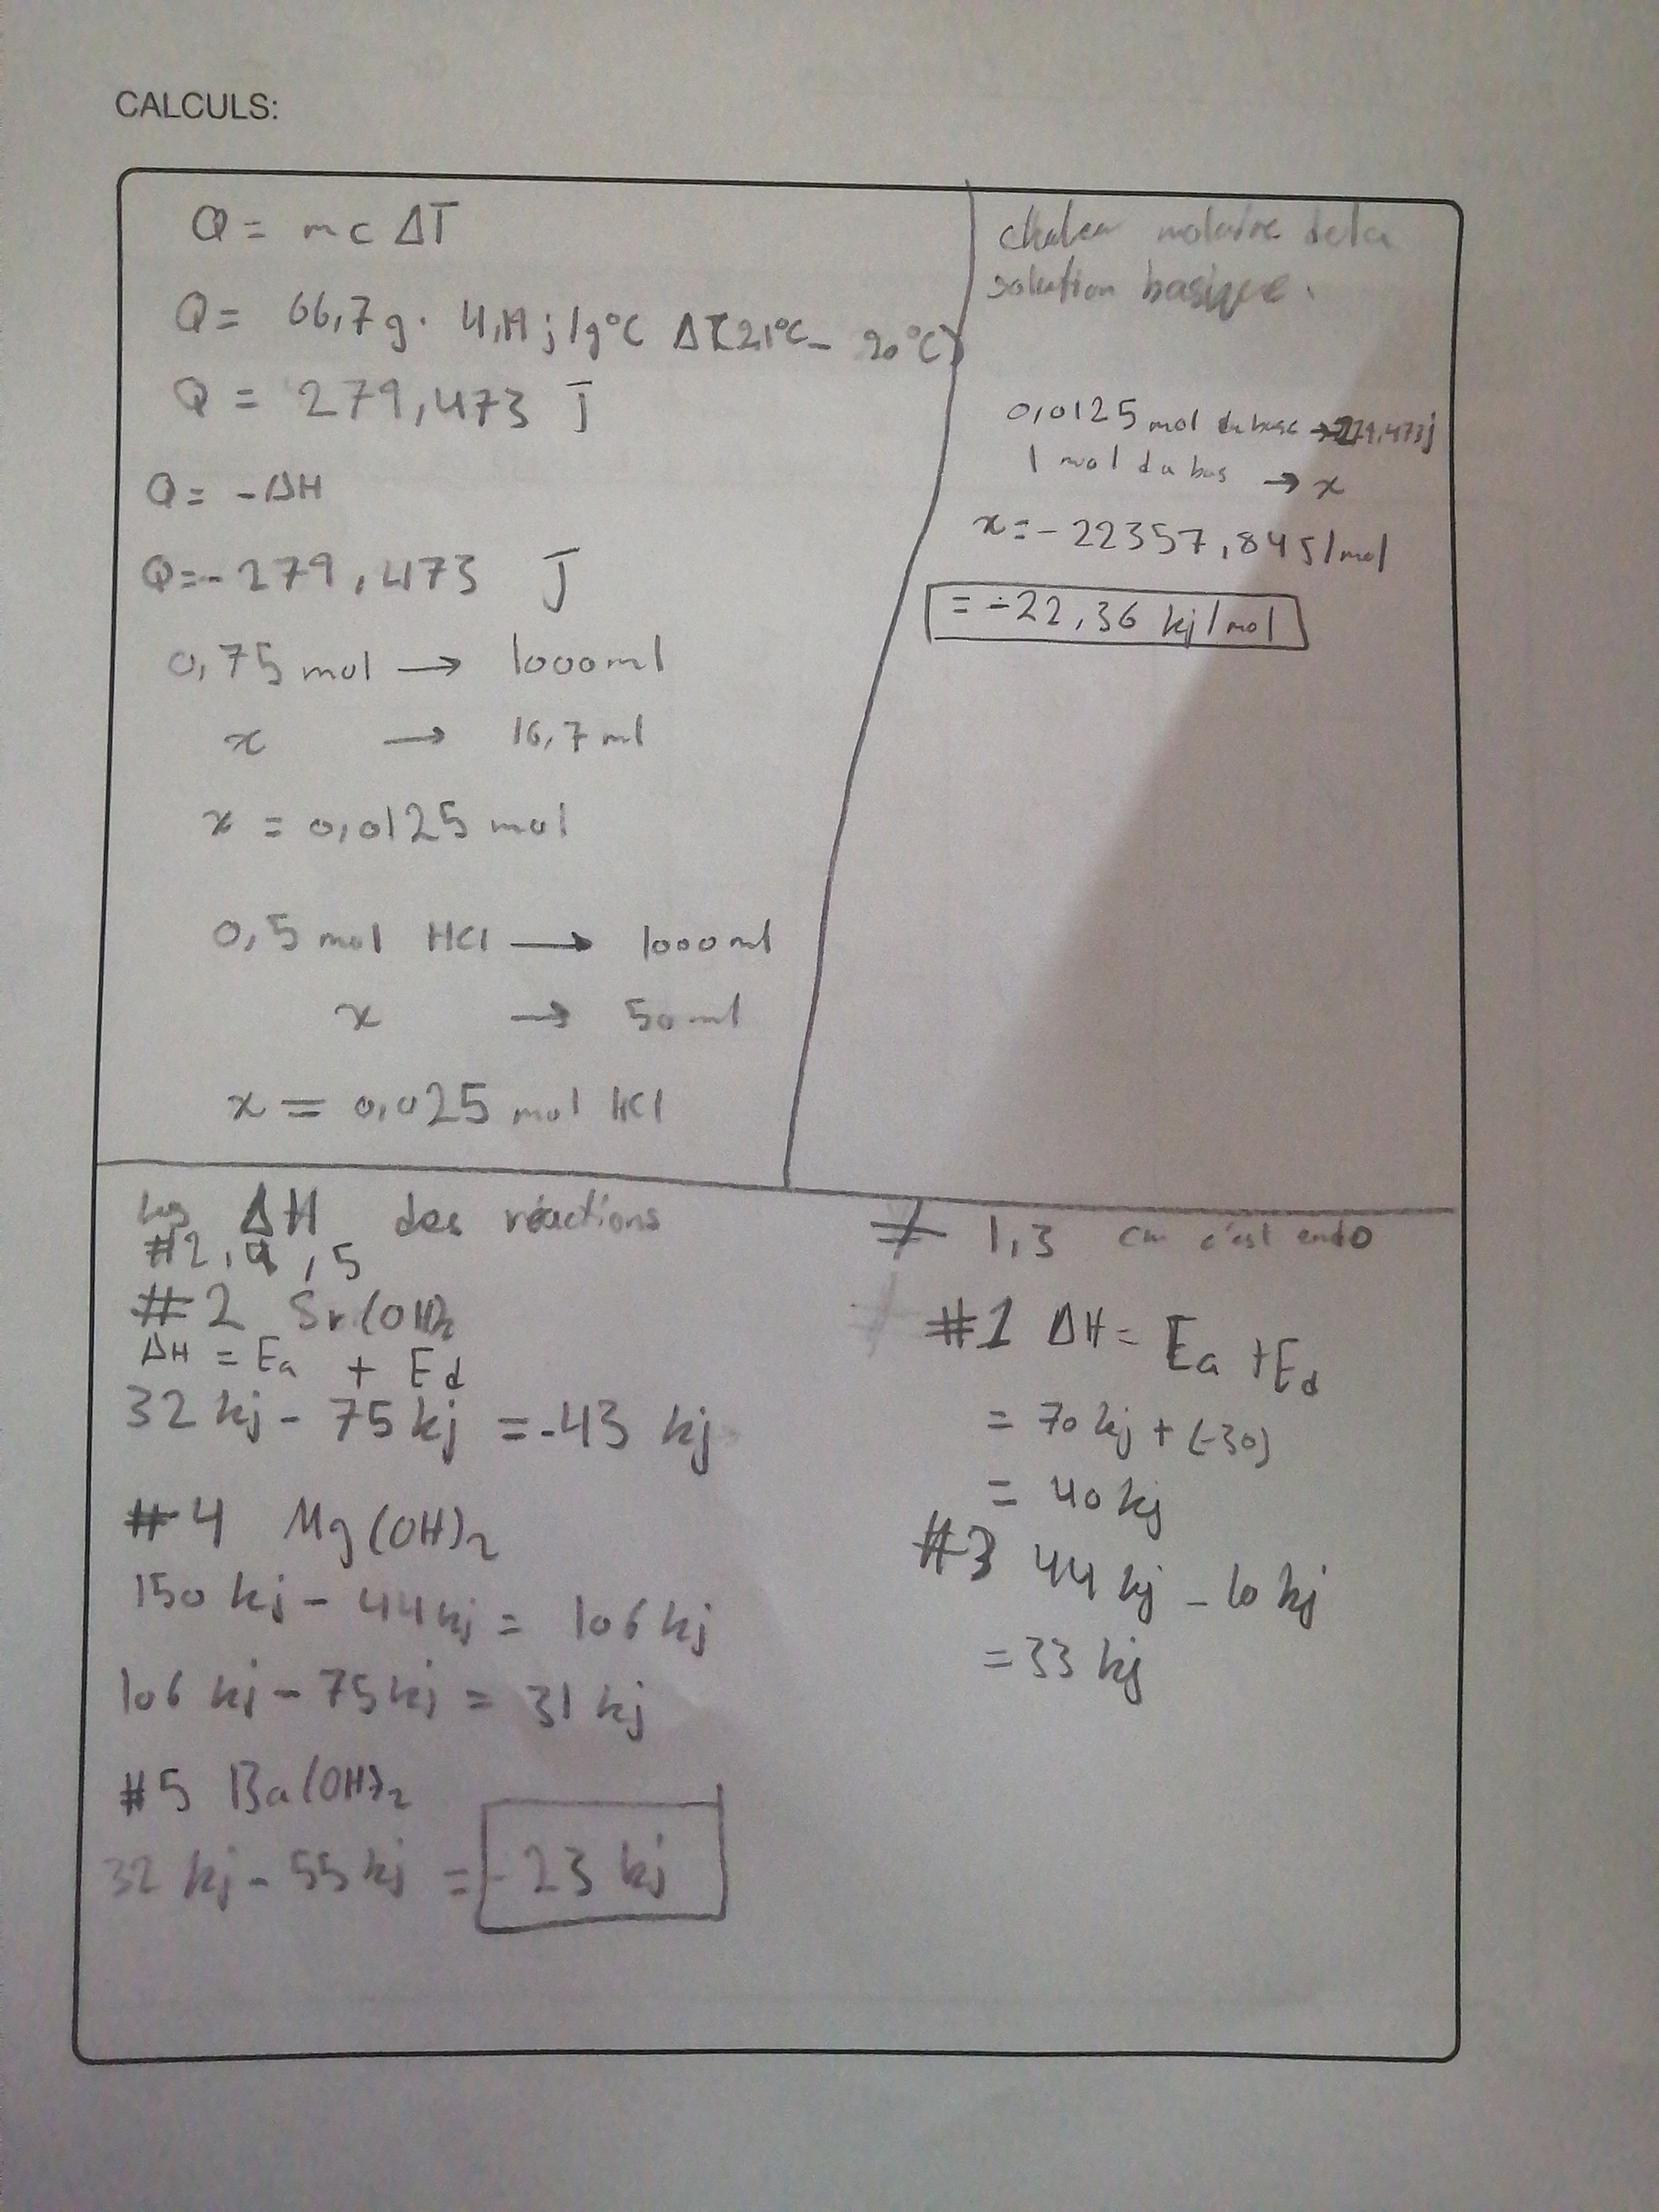 CALCULS:
Q = mc ΔT
Q = 66,7g · 4,19 j/g°C ΔT(21°C - 20°C)
Q = 279,473 J
Q = -ΔH
Q=-279,473 J
0,75 mol → 1000ml
x → 16,7 ml
x = 0,0125 mol
0,5 mol HCl → 1000ml
x → 50ml
x = 0,025 mol HCl
molaire de la
solution basique.
0,0125 mol du base → -279,473j
1 mol du bas → x
x = -22357,84 J/mol
= -22,36 kj/mol
les ΔH des réactions
#2, 4, 5
#2 Sr(OH)2
ΔH = Ea + Ed
32 kj - 75 kj = -43 kj
#4 Mg(OH)2
150 kj - 44 kj = 106 kj
106 kj - 75 kj = 31 kj
#5 Ba(OH)2
32 kj - 55 kj = -23 kj
≠ 1,3 c'est endo
#1 ΔH = Ea + Ed
= 70 kj + (-30)
= 40 kj
#3 44 kj - 10 kj
= 33 kj